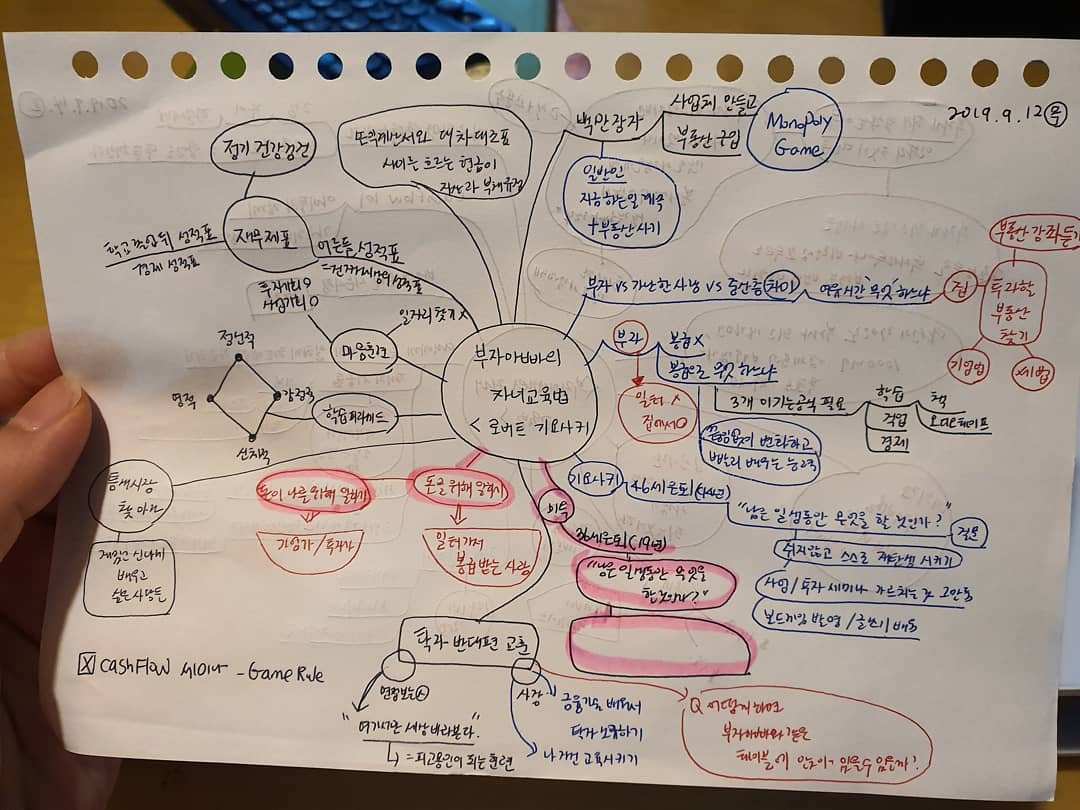 2019.9.12 목
정기 건강검진
손익계산서와 대차대조표
사이를 흐르는 현금이
자산과 부채 규정
백만장자
사업체 만들고
부동산 구입
MonoPoly
Game
일반인
지금하는 일 계속
+부동산 사기
재무제표
학교 졸업뒤 성적표
경제 성적표
어른들 성적표
투자기회 O
사업기회 O
일자리 찾기 X
마음훈련
정신적
영적
감정적
신체적
학습 피라미드
부자아빠의
자녀교육법
< 로버트 기요사키
부자 vs 가난한 사람 vs 중산층 차이
여유시간 무엇 하느냐
집
투자할
부동산
찾기
부동산 강좌듣기
기업법
세법
부자
봉급 X
봉급으로 무엇 하느냐
일터 X
집에서 O
3개 이기는 공식 필요
학습
직업
경제
책
오디오테이프
빨리 배우는 능력
기요사키
46세 은퇴
"남은 일생동안 무엇을 할 것인가?"
질문
쉬지않고 스스로 재탄생 시키기
사업/투자 세미나 가르치는 것 그만둠
보드게임 발명 / 글쓰기 배움
36세 은퇴 (19년)
"남은 일생동안 무엇을
할것인가?"
돈을 위해 일하기
일터가서
봉급받는 사람
돈이 나를 위해 일하기
기업가/투자가
틈새시장
찾아
재밌고 신나게
배우고
싶은 사람들
탁자 반대편 교훈
면접보는
"여기서만 세상 바라본다."
= 피고용인이 되는 훈련
사장
금융지식 배워서
탁자
나 자신 교육시키기
Q 어떻게 하면
부자아빠와 같은
테이블에
있을까?
X CashFlow
- Game Rule